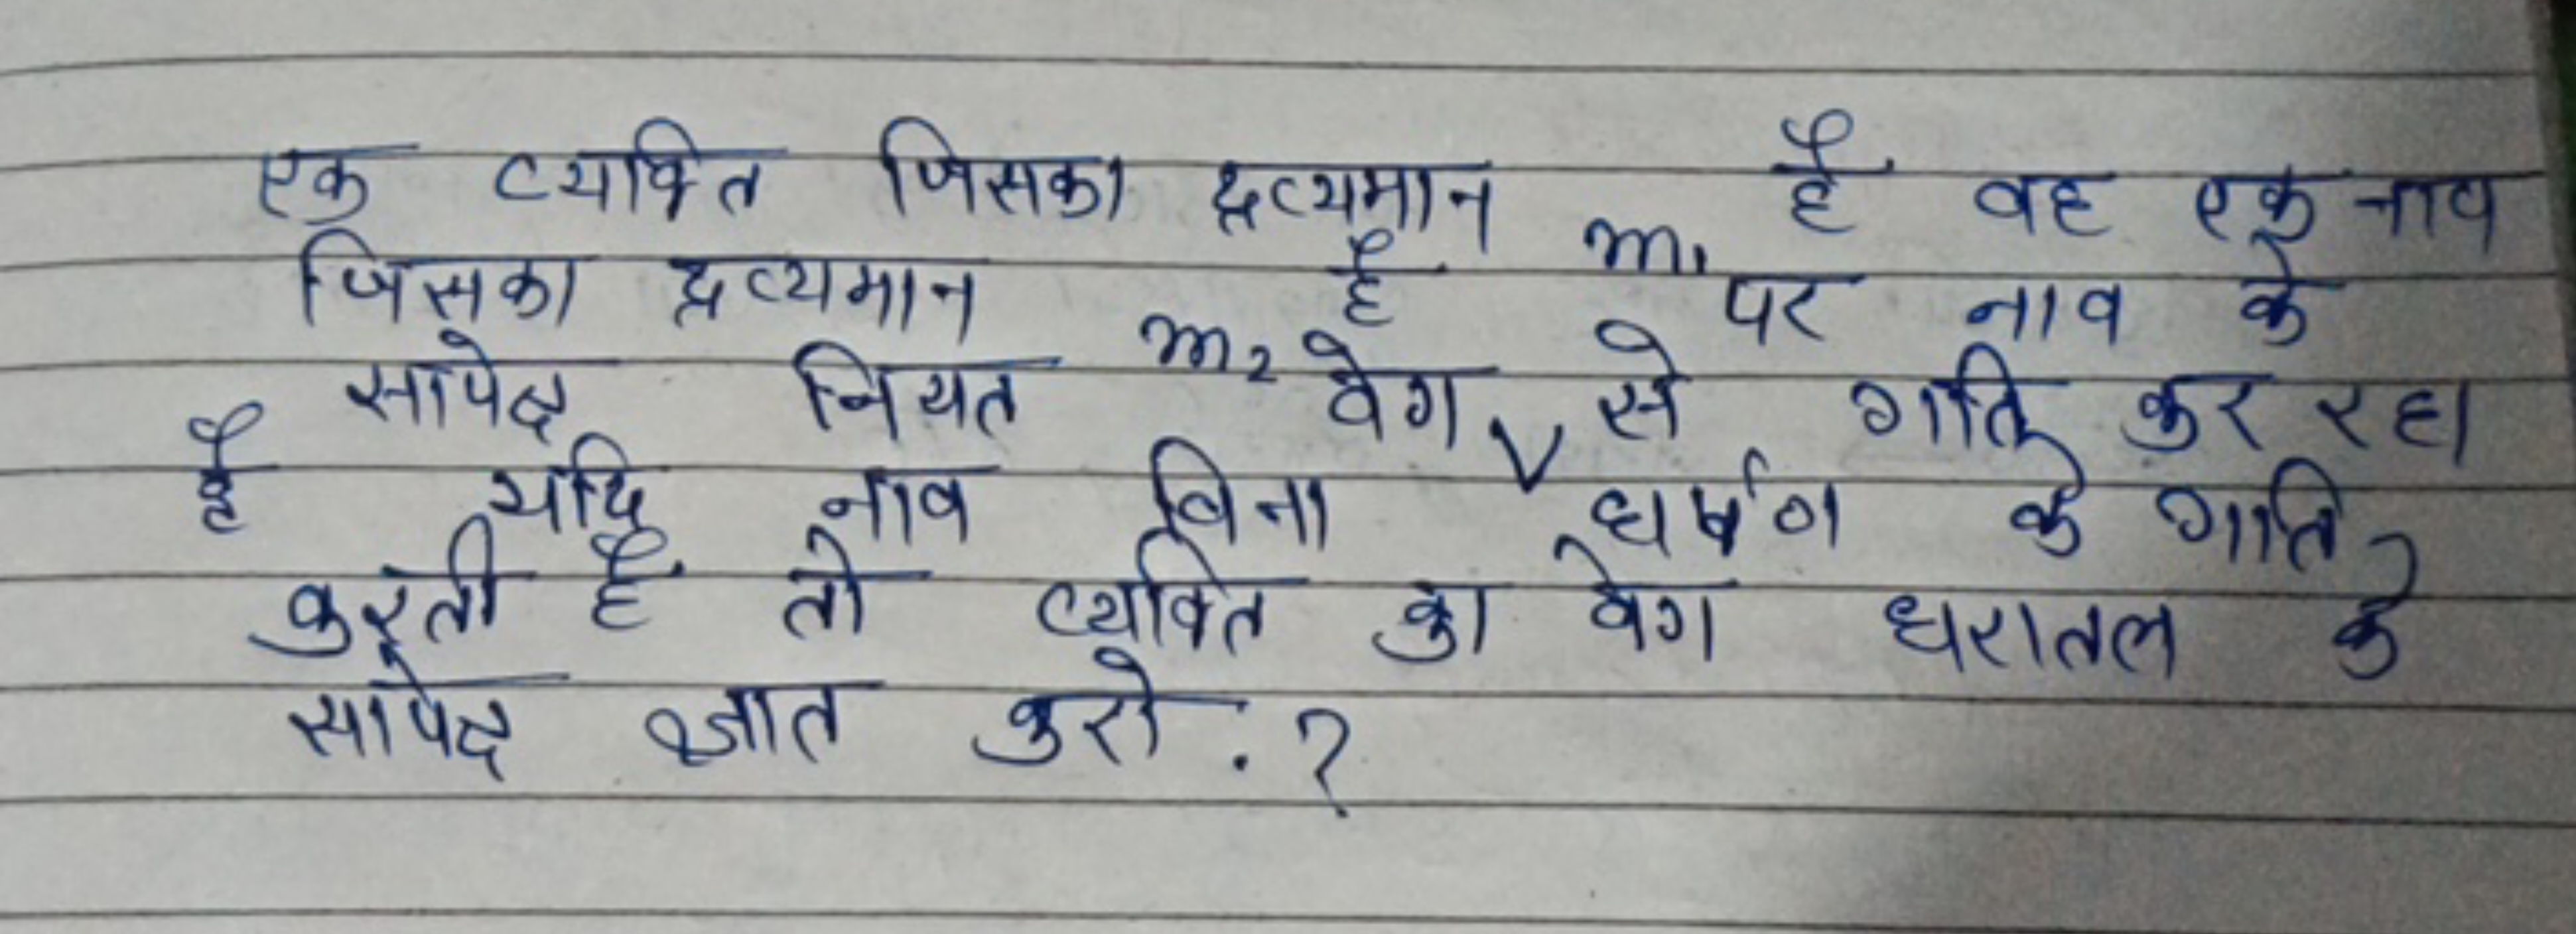 एक व्यक्ति जिसका द्रव्यमान m₁ है वह एक नाव
जिसका द्रव्यमान m₂ है पर नाव के
सापेक्ष नियत वेग v से गति कर रहा
है यदि नाव बिना घर्षण के गति
करती है तो व्यक्ति का वेग धरातल के
सापेक्ष ज्ञात करो . ?